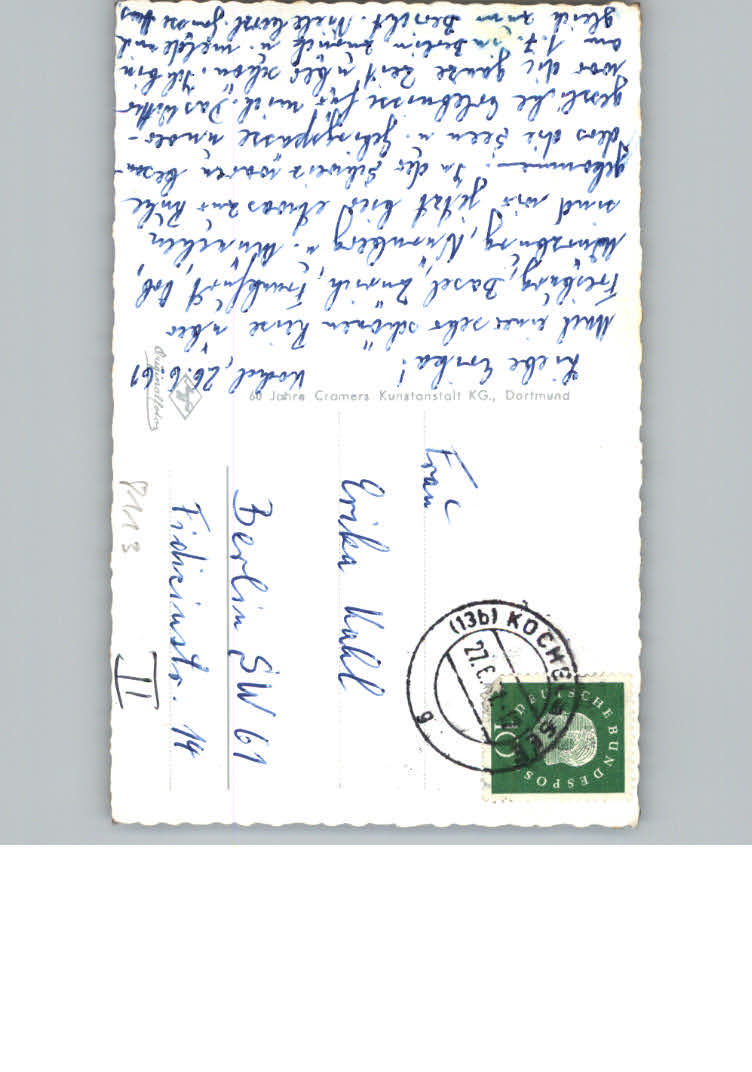 Kochel, 26.6.61
Liebe Erika!
Nach einer sehr schönen Reise über
Freiburg, Basel, Zürich, Frankfurt, Rob,
Würzburg, Nürnberg u. München
sind wir jetzt hier etwas zur Ruhe
gekommen. In der Schweiz waren beson-
ders die Seen u. Gebirgspässe unver-
gessliche Erlebnisse für mich. Das Wetter
war die ganze Zeit über schön. Ich bin
am 1.7. in Berlin zurück u. melde mich
gleich zum Bericht. Viele herzl. Grüsse
60 Jahre Cramers Kunstanstalt KG., Dortmund
Originalfoto
Frau
Erika Kahl
Berlin SW 61
Fidicinstr. 14
II
(13b) KOCHEL a. SEE
27.6.
DEUTSCHE BUNDESPOST
10